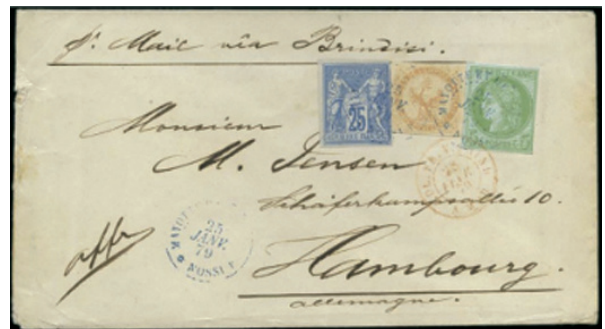 pr. Mail via Brindisi.
25
Monsieur
M. Jensen
Schäferkampsallée 10.
Hambourg.
allemagne.
affr
MAYOTTE
25
JANV.
79
NOSSI-BÉ